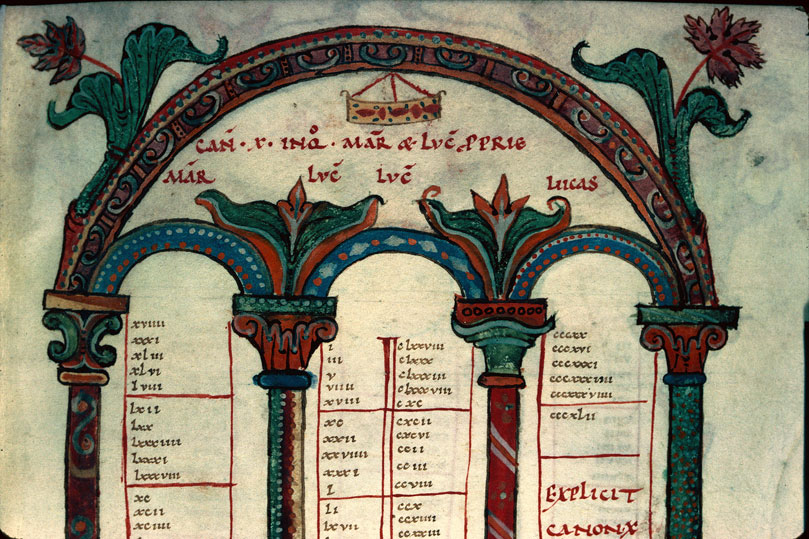 CAN̄ · X · INQ̊ · MAR̄ & LUC̄ PPRIE
MAR̄ LUC̄ LUC̄ LUCAS
xviiii
xxxi
xliii
xlvi
lviii
lxii
lxx
lxxxiiii
lxxxi
lxxxviii
xc
xcii
xciiii
i
iii
v
viiii
xviii
xc
xxii
xxviiii
xxxi
l
li
lxvii
clxxviii
clxxx
clxxxiii
clxxxviii
cxc
cxcii
cxcvi
ccii
cciii
ccviii
ccx
ccxiiii
ccxxiii
cccxx
cccxvi
cccxxxi
cccxxxiiii
cccxxxviiii
cccxlii
EXPLICIT
CANON X